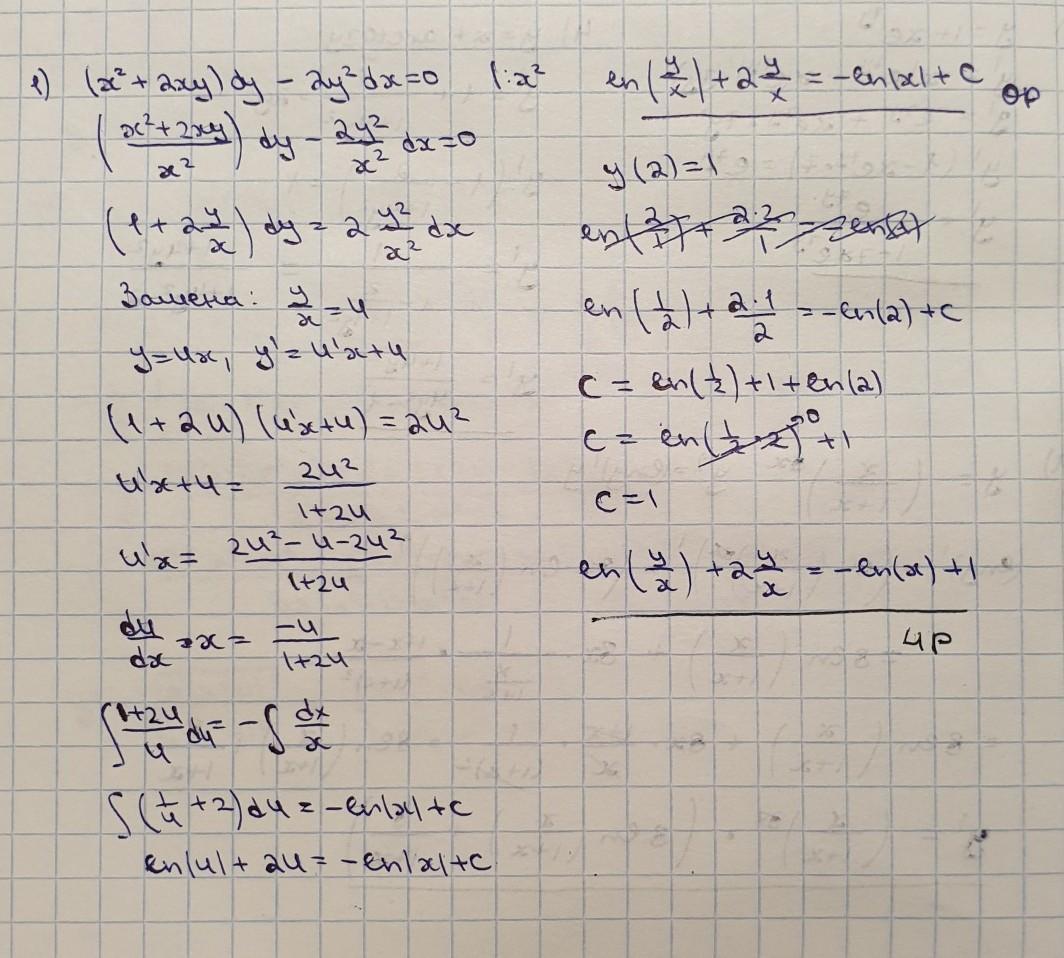 1) (x² + 2xy) dy − 2y² dx = 0 | :x²
((x² + 2xy)/x²) dy − (2y²/x²) dx = 0
(1 + 2 y/x) dy = 2 y²/x² dx
Замена: y/x = u
y = ux, y' = u'x + u
(1 + 2u) (u'x + u) = 2u²
u'x + u = 2u²/(1 + 2u)
u'x = (2u² − u − 2u²)/(1 + 2u)
du/dx · x = −u/(1 + 2u)
∫ (1 + 2u)/u du = −∫ dx/x
∫ (1/u + 2) du = −ln|x| + c
ln|u| + 2u = −ln|x| + c
ln|y/x| + 2 y/x = −ln|x| + C ОР
y(2) = 1
ln(1/2) + (2·1)/2 = −ln(2) + C
C = ln(1/2) + 1 + ln(2)
C = ln(1/2 · 2)→0 + 1
C = 1
ln(y/x) + 2 y/x = −ln(x) + 1
ЧР